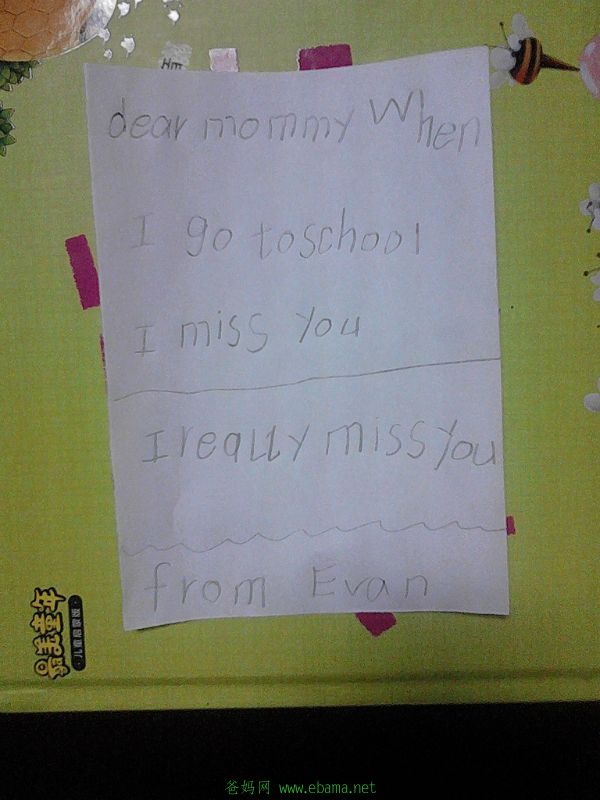 dear mommy When
I go to school
I miss you
I really miss you
from Evan
儿童启蒙版
爸妈网 www.ebama.net